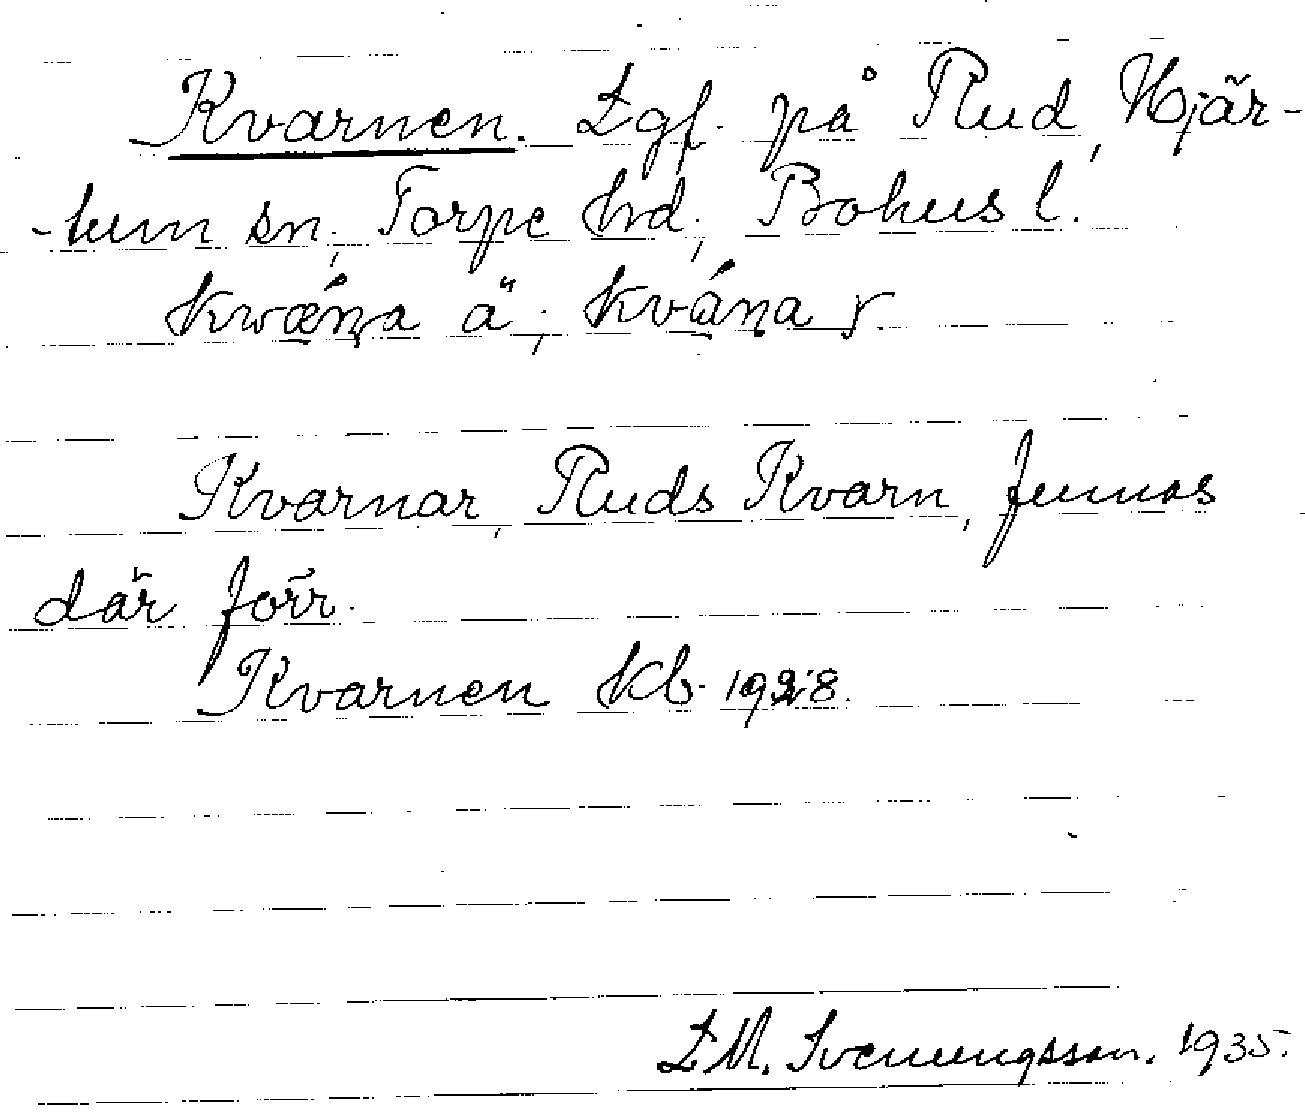 Kvarnen. Lgf. på Rud, Hjär-
-tum sn, Torpe hd, Bohus l.
kwǽṇa ä; kváṇa y.
Kvarnar, Ruds Kvarn, funnos
där förr.
Kvarnen kb. 1928.
L.M. Svenungsson. 1935.